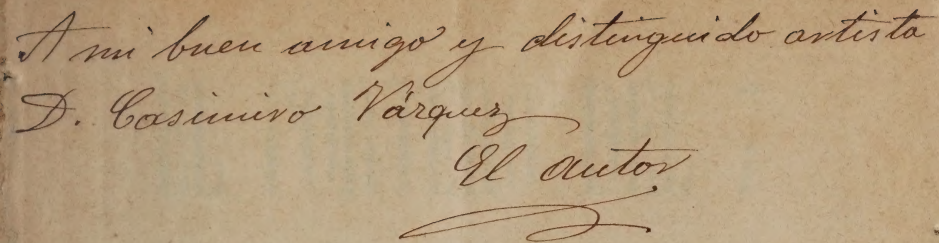 A mi buen amigo y distinguido artista
D. Casimiro Vázquez
El autor